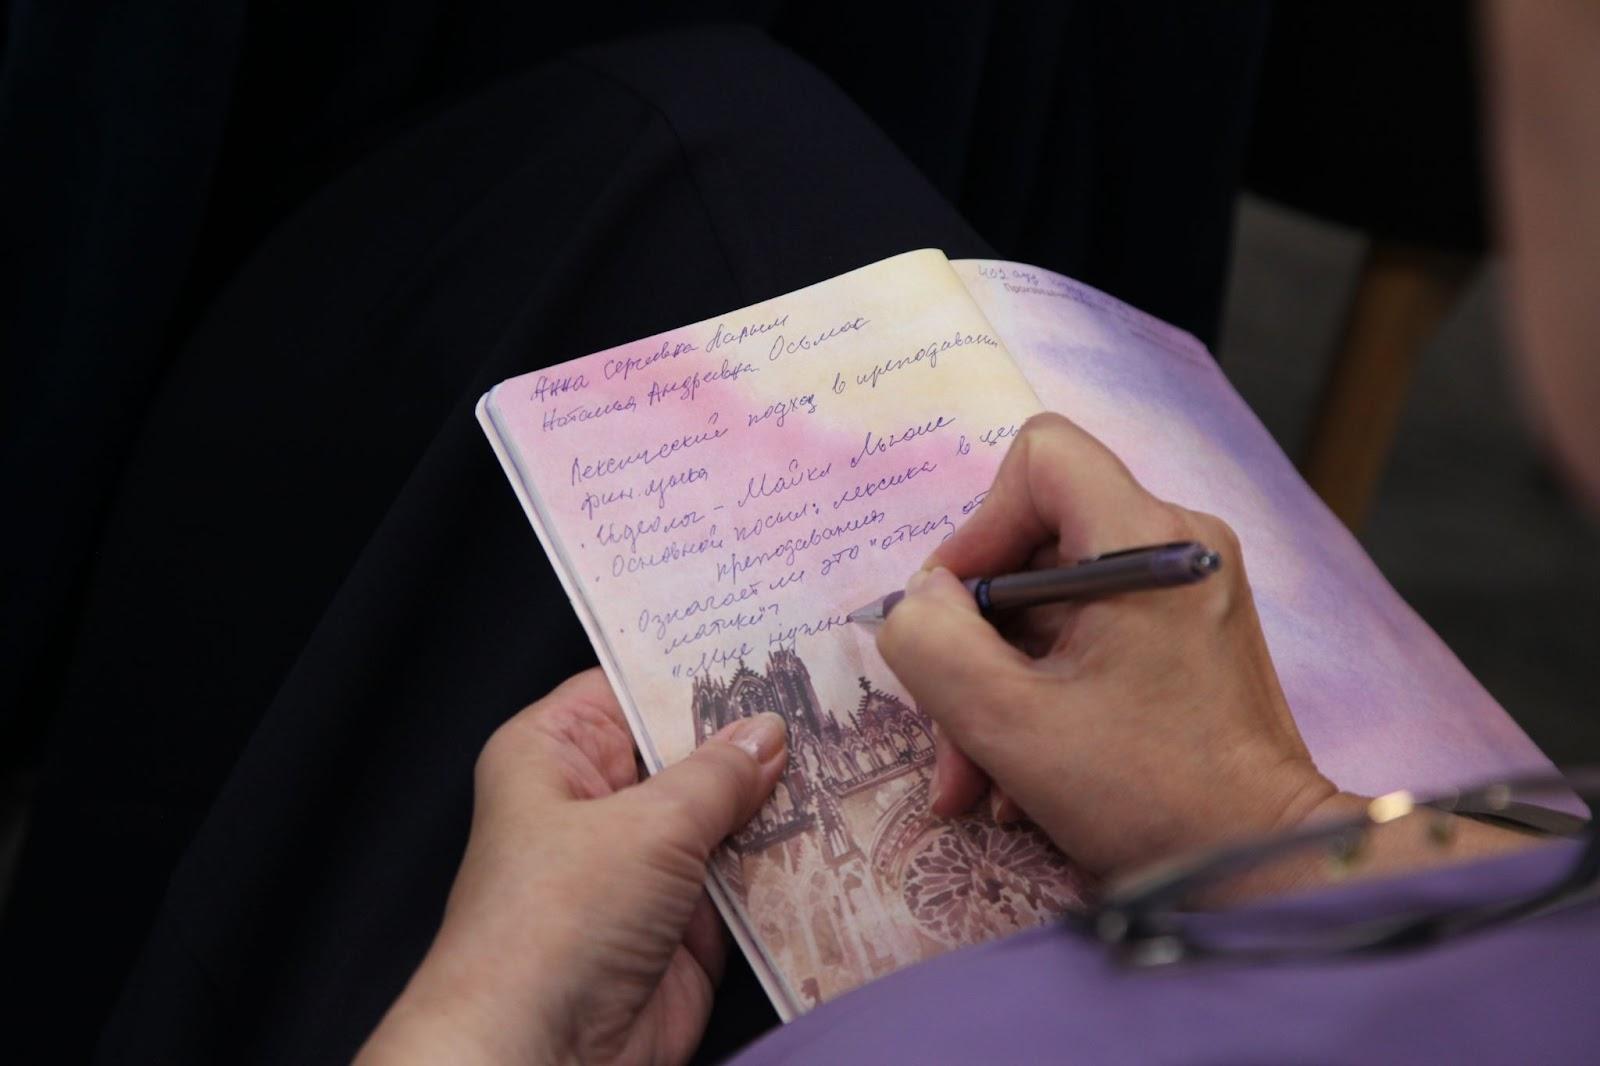 Анна Сергеевна Парым
Наталья Андреевна Осьмак
Лексический подход в преподавани
фин. языка
· Идеолог - Майкл Льюис
· Основной посыл: лексика в цен
преподавания
· Означает ли это "отказ от
матики"?
"Мне нужн
402 ауд